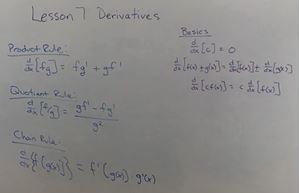 Lesson 7 Derivatives
Product Rule:
d/dx [fg] = fg' + gf'
Quotient Rule:
d/dx [f/g] = gf' - fg' / g²
Chain Rule:
d/dx {f[g(x)]} = f'(g(x)) · g'(x)
Basics
d/dx [c] = 0
d/dx [f(x) ± g(x)] = d/dx [f(x)] ± d/dx [g(x)]
d/dx [cf(x)] = c d/dx [f(x)]